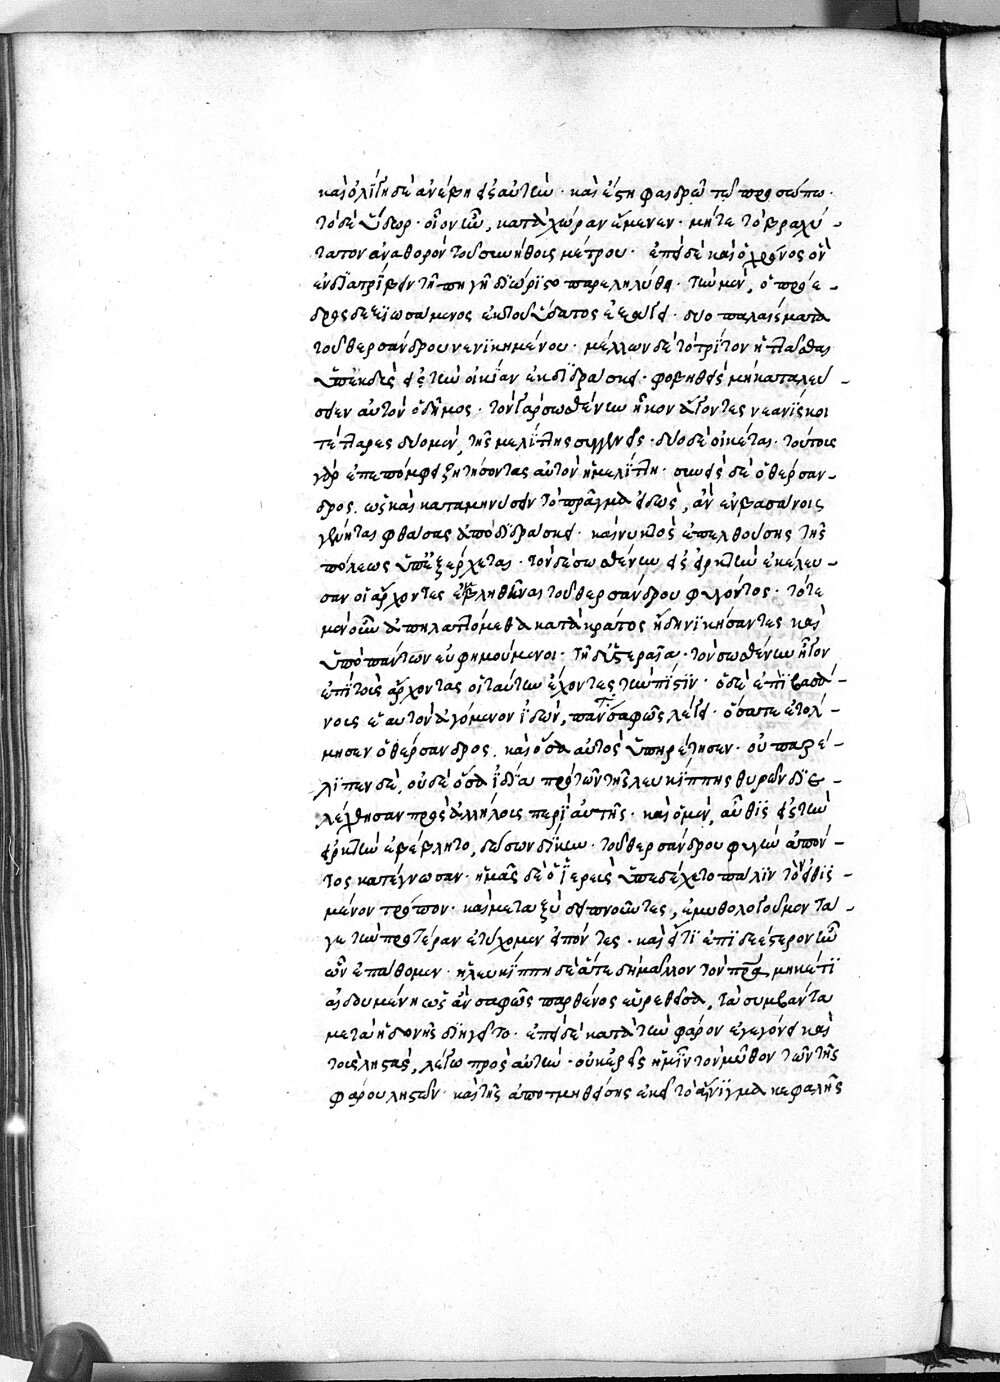 καὶ ὀλίγη δὲ ἀνέβη ἐξ αὐτῶν· καὶ ἔστη φαιδρῷ τῷ προσώπῳ·
τὸ δὲ ὕδωρ· οἷον ἦν, κατὰ χώραν ἔμενεν· μήτε τὸ βραχύ-
τατον ἀναθορὸν τοῦ συνήθους μέτρου· ἐπεὶ δὲ καὶ ὁ χρόνος ὃν
ἐνδιατρίβειν τῇ πηγῇ διώριστο παρεληλύθει· τὴν μὲν, ὁ πρόε-
δρος δεξιωσάμενος ἐκ τοῦ ὕδατος ἐξάγει· δύο παλαίσματα
τοῦ θερσάνδρου νενικημένου· μέλλων δὲ τὸ τρίτον ἡττᾶσθαι
ὑπεκδὺς εἰς τὴν οἰκίαν ἐκδιδράσκει· φοβηθεὶς μὴ καταλεύ-
σειεν αὐτὸν ὁ δῆμος· τὸν γὰρ σωσθένην ἧκον ἄγοντες νεανίσκοι
τέτταρες δύο μὲν, τῆς μελίττης συγγενεῖς· δύο δὲ οἰκέται· τούτους
γὰρ ἐπεπόμφει ζητήσοντας αὐτὸν ἡ μελίττη· συνεὶς δὲ ὁ θέρσαν-
δρος. ὡς καὶ καταμηνύσειν τὸ πρᾶγμα εἰδὼς, ἂν ἐν βασάνοις
γένηται φθάσας ἀποδιδράσκει· καὶ νυκτὸς ἐπελθούσης τῆς
πόλεως ὑπεξέρχεται· τὸν δὲ σωσθένην εἰς εἰρκτὴν ἐκέλευ-
σαν οἱ ἄρχοντες ἐμβληθῆναι τοῦ θερσάνδρου φυγόντος· τότε
μὲν οὖν ἀπηλαττόμεθα κατὰ κράτος ἤδη νικήσαντες καὶ
ὑπὸ πάντων εὐφημούμενοι· τῇ δὲ ὑστεραίᾳ· τὸν σωσθένην ἦγον
ἐπὶ τοὺς ἄρχοντας οἱ ταύτην ἔχοντες τὴν πίστιν· ὁ δὲ ἐπὶ βασά-
νους ἑαυτὸν ἀγόμενον ἰδὼν, πάντα σαφῶς λέγει· ὅσα τε ἐτόλ-
μησεν ὁ θέρσανδρος. καὶ ὅσα αὐτὸς ὑπηρέτησεν· οὐ παρέ-
λιπεν δὲ, οὐδὲ ὅσα ἰδίᾳ πρὸ τῶν τῆς λευκίππης θυρῶν διε-
λέχθησαν πρὸς ἀλλήλους περὶ αὐτῆς· καὶ ὁ μὲν, αὖθις εἰς τὴν
εἰρκτὴν ἐβέβλητο, δώσων δίκην· τοῦ θερσάνδρου φυγὴν ἀπόν-
τος κατέγνωσαν· ἡμᾶς δὲ ὁ ἱερεὺς ὑπεδέχετο πάλιν τὸν εἰθισ-
μένον τρόπον· καὶ μεταξὺ δειπνοῦντες, ἐμυθολογοῦμεν τά
γε τὴν προτέραν ἐτύχομεν εἰπόντες· καὶ εἴ τι ἐπιδεέστερον ἦν
ὧν ἐπάθομεν· ἡ λευκίππη δὲ ἅτε δὴ μᾶλλον τὸν πρα μηκέτι
αἰδουμένη ὡς ἂν σαφῶς παρθένος εὑρεθεῖσα, τὰ συμβάντα
μετὰ ἡδονῆς διηγεῖτο· ἐπεὶ δὲ κατὰ τὴν φάρον ἐγεγόνει καὶ
τοὺς λῃστὰς, λέγω πρὸς αὐτὴν· οὐκ ἐρεῖς ἡμῖν τὸν μῦθον τῶν τῆς
φάρου λῃστῶν· καὶ τῆς ἀποτμηθείσης ἐκεῖ τὸ αἴνιγμα κεφαλῆς